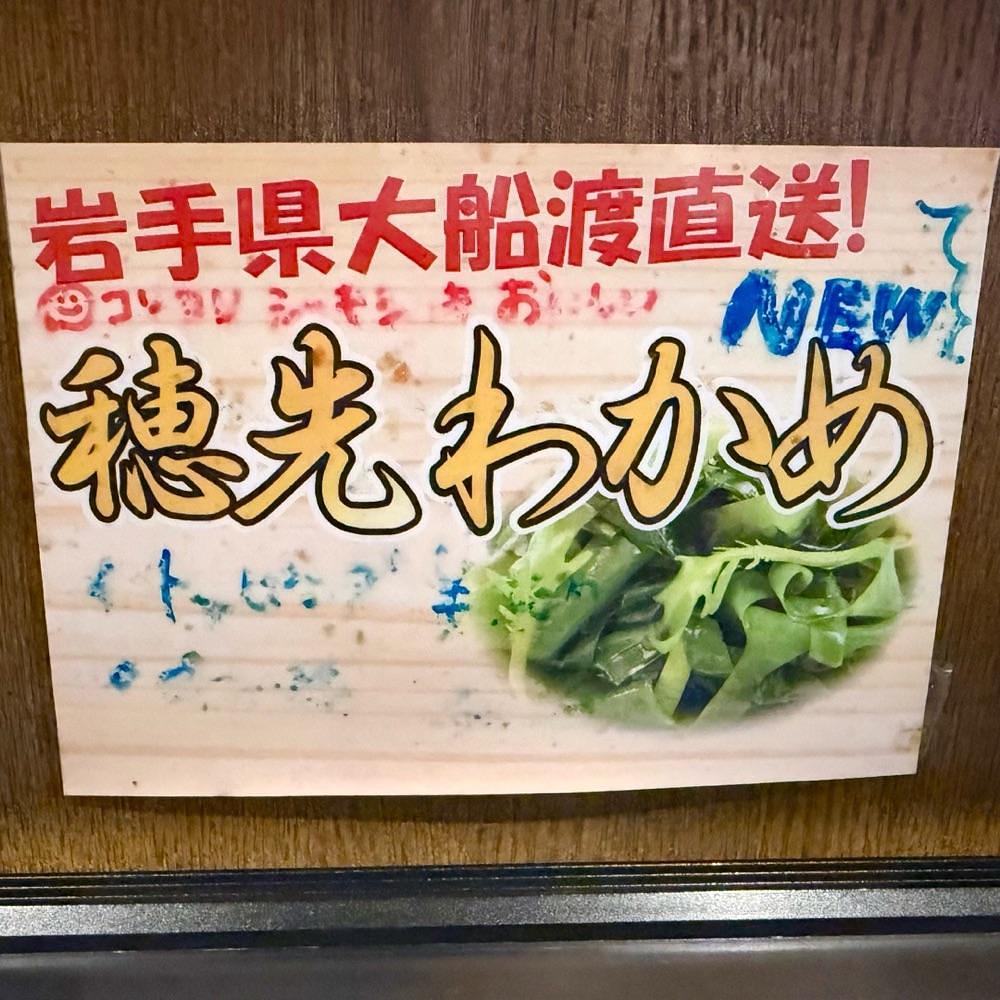 岩手県大船渡直送!
コリコリ シャキシャキ おいしい
NEW
穂先わかめ